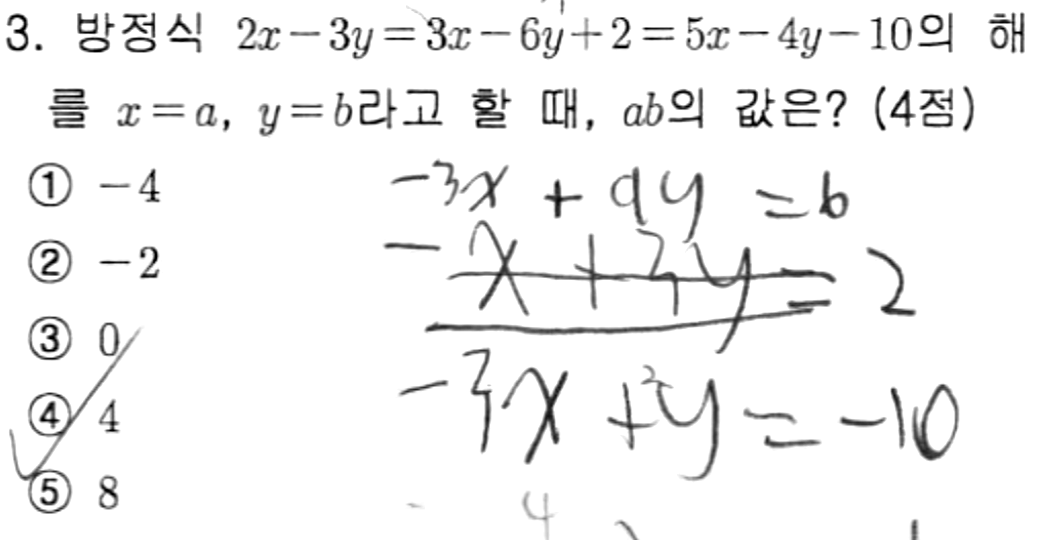 3. 방정식 2x-3y=3x-6y+2=5x-4y-10의 해
를 x=a, y=b라고 할 때, ab의 값은? (4점)
① -4
② -2
③ 0
④ 4
⑤ 8
-3x + 9y = 6
-x + 3y = 2
-3x + y = -10
4